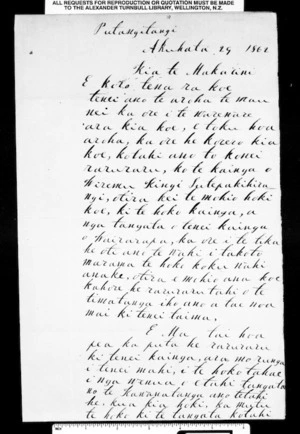 ALL REQUESTS FOR REPRODUCTION OR QUOTATION MUST BE MADE
TO THE ALEXANDER TURNBULL LIBRARY, WELLINGTON, N.Z.
Putangitangi
Akuhata 29 1862
Kia te Makarini
E hoto tena ra koe
tenei ano te aroha te mau
nei ka ore i te warewar
ara kia koe, e toku hoa
aroha, ka ore he korero kia
koe, kotahi ano to konei
raruraru, ko te kainga o
Wiremu Kingi Tutepakihira
ngi, otira kei te mohio hoki
koe, ki te hoko kainga, a
nga tangata o tenei kainga
o Wairarapa, ka ore i te tika
he oti ano te wahi i takoto
marama te hoko koku wahi
anake, otira e mohio ana koe
kahore he raruraru tahi o te
timatanga iho ano a tae noa
mai ki tenei taima.
E Ma tai hoa
pea ka puta he raruraru
ki tenei kainga, ara mo runga
i tenei mahi, i te hoko takae
i nga wenua o etahi tangata
no te Kawanatanga ano tetahi
he, kua kia hoki, ka mutu
te hoko ki te tangata kotahi